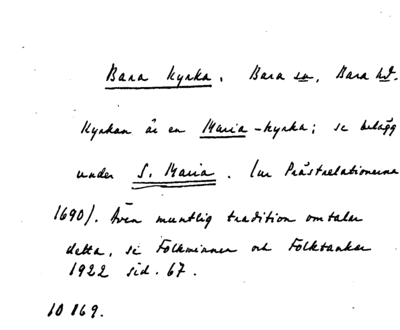 Bara kyrka. Bara sn, Bara hd.
Kyrkan är en Maria-kyrka; se belägg
under S. Maria. (ur Prästrelationerna
1690/. Även muntlig tradition omtalar
detta, se Folkminnen och Folktankar
1922 sid. 67.
10169.